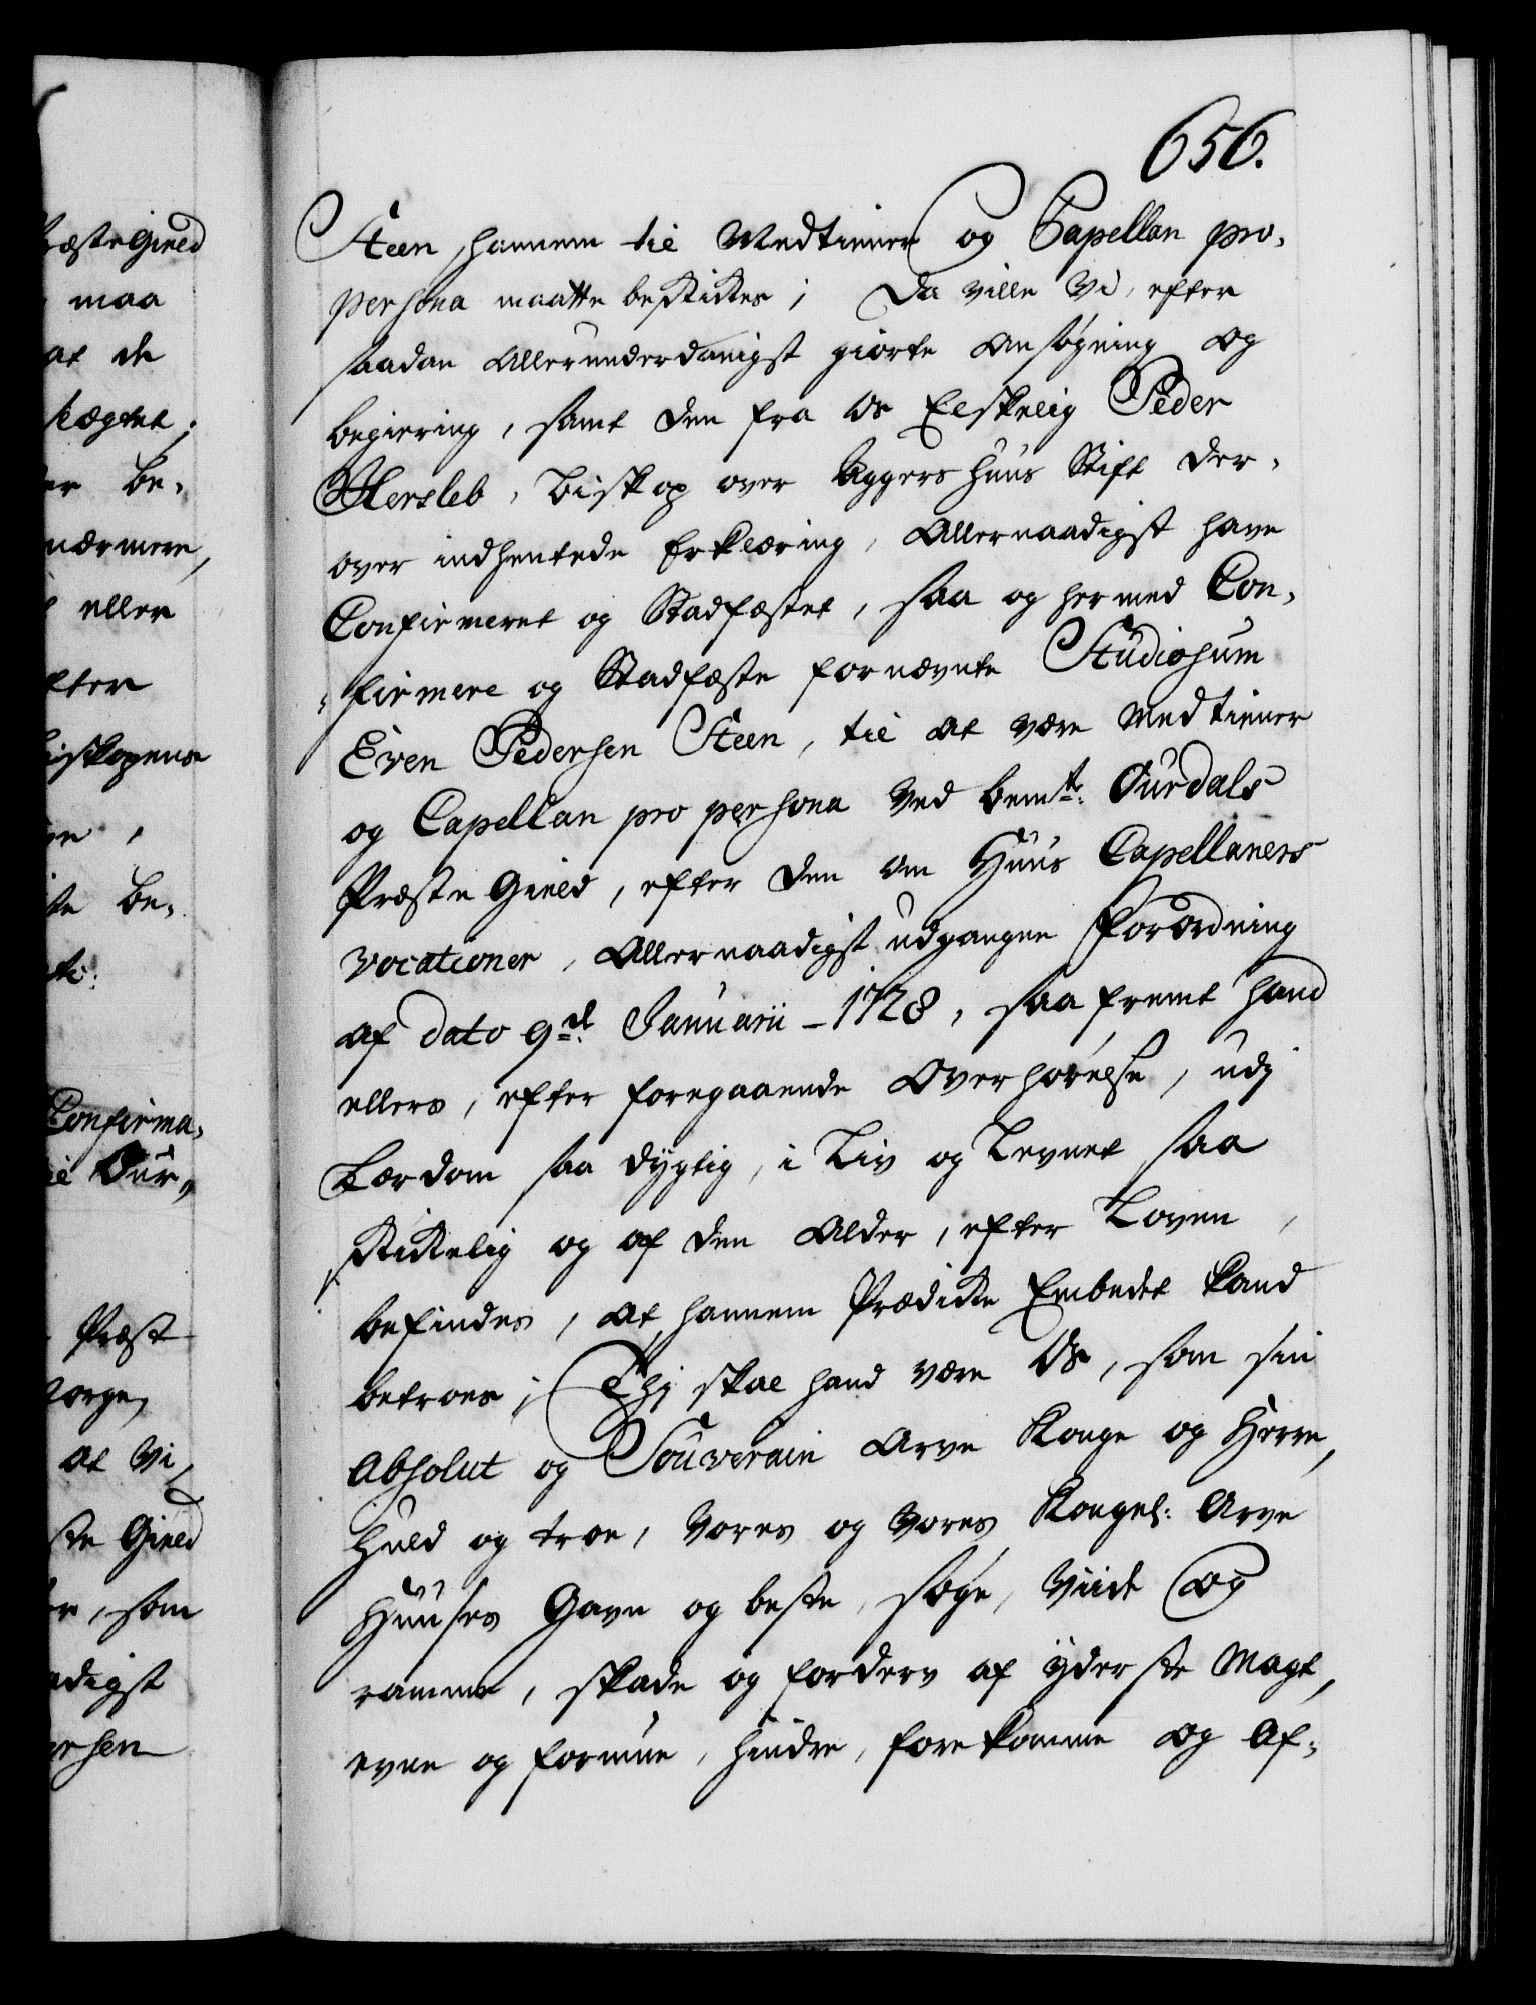 656.
Steen, hannem til Medtiener og Capellan pro-
persona maatte beskikkes; Da ville Vi, efter
saadan Allerunderdanigst giorte Ansøgning og
begiering, samt den fra Os Elskelig Peder
Hersleb, Biskop over Aggershuus Stift der-
over indhentede Erklæring, Allernaadigst have
Confirmeret og Stadfæstet, saa og hermed Con-
firmere og Stadfæste fornævnte Studiosum
Even Pedersen Steen, til at være Medtiener
og Capellan pro persona ved bemte: Ourdals
Præste Gield, efter den om Huus Capellaners
vocationer, Allernaadigst udgangne Forordning
af dato 9de Januarii - 1728, saafremt hand
ellers, efter foregaaende Overhørelse, udj
Lærdom saa dygtig, i Liv og Levnet saa
skikkelig og af den Alder, efter Loven,
befindes, at hannem Prædicke Embedet kand
betroes; Thj skal hand være Os, som sin
Absolut og Souverain Arve Konge og Herre,
huld og troe, Vores og Vores Kongel: Arve
Huuses Gavn og beste, søge, Viide og
ramme, skade og forderv af yderste Magt,
evne og formue, hindre, forekomme og af-
ræste Gield
maa
at de
eller
Confirma-
Our-
Præst
at Vi
ste Gield
, som